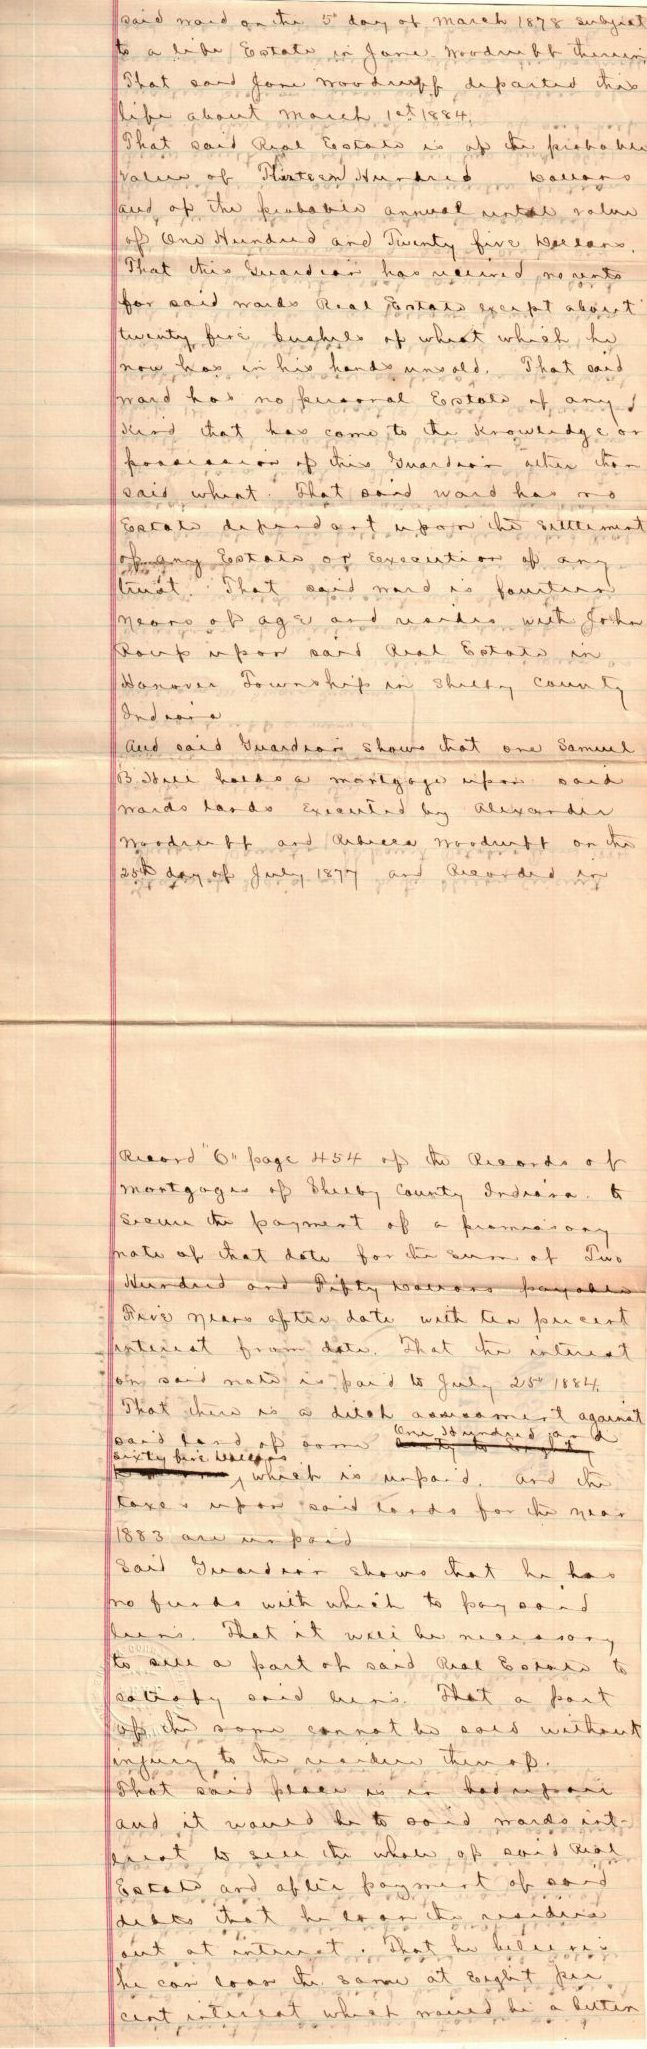 said ward on the 5th day of March 1878 subject
to a life Estate in Jane Woodruff therein
That said Jane Woodruff departed this
life about March 1st 1884.
That said Real Estate is of the probable
value of Thirteen Hundred Dollars
and of the probable annual rental value
of One Hundred and Twenty five Dollars.
That this Guardian has received no rents
for said wards Real Estate except about
twenty five bushels of wheat which he
now has in his hands unsold. That said
ward has no personal Estate of any
Kind that has come to the Knowledge or
possession of this Guardian other than
said wheat. That said ward has no
Estate dependent upon the settlement
of any Estate or Execution of any
trust. That said ward is fourteen
years of age and resides with John
Roup upon said Real Estate in
Hanover Township in Shelby County
Indiana
And said Guardian shows that one Samuel
B. Hill holds a mortgage upon said
wards lands Executed by Alexander
Woodruff and Rebecca Woodruff on the
25th day of July 1877 and Recorded in
Record "6" page 454 of the Records of
Mortgages of Shelby County Indiana. to
secure the payment of a promissory
note of that date for the sum of Two
Hundred and Fifty Dollars payable
Five years after date with ten percent
interest from date. That the interest
on said note is paid to July 25th 1884.
That there is a ditch assessment against
said land of some One Hundred and
sixty five Dollars
which is unpaid. And the
taxes upon said lands for the year
1883 are unpaid
Said Guardian shows that he has
no funds with which to pay said
liens. That it will be necessary
to sell a part of said Real Estate to
satisfy said liens. That a part
of the same cannot be sold without
injury to the residue thereof.
That said place is in bad repair
and it would be to said wards int-
erest to sell the whole of said Real
Estate and after payment of said
debts that he loan the residue
out at interest. That he believes
he can loan the same at Eight per
cent interest which would be a better